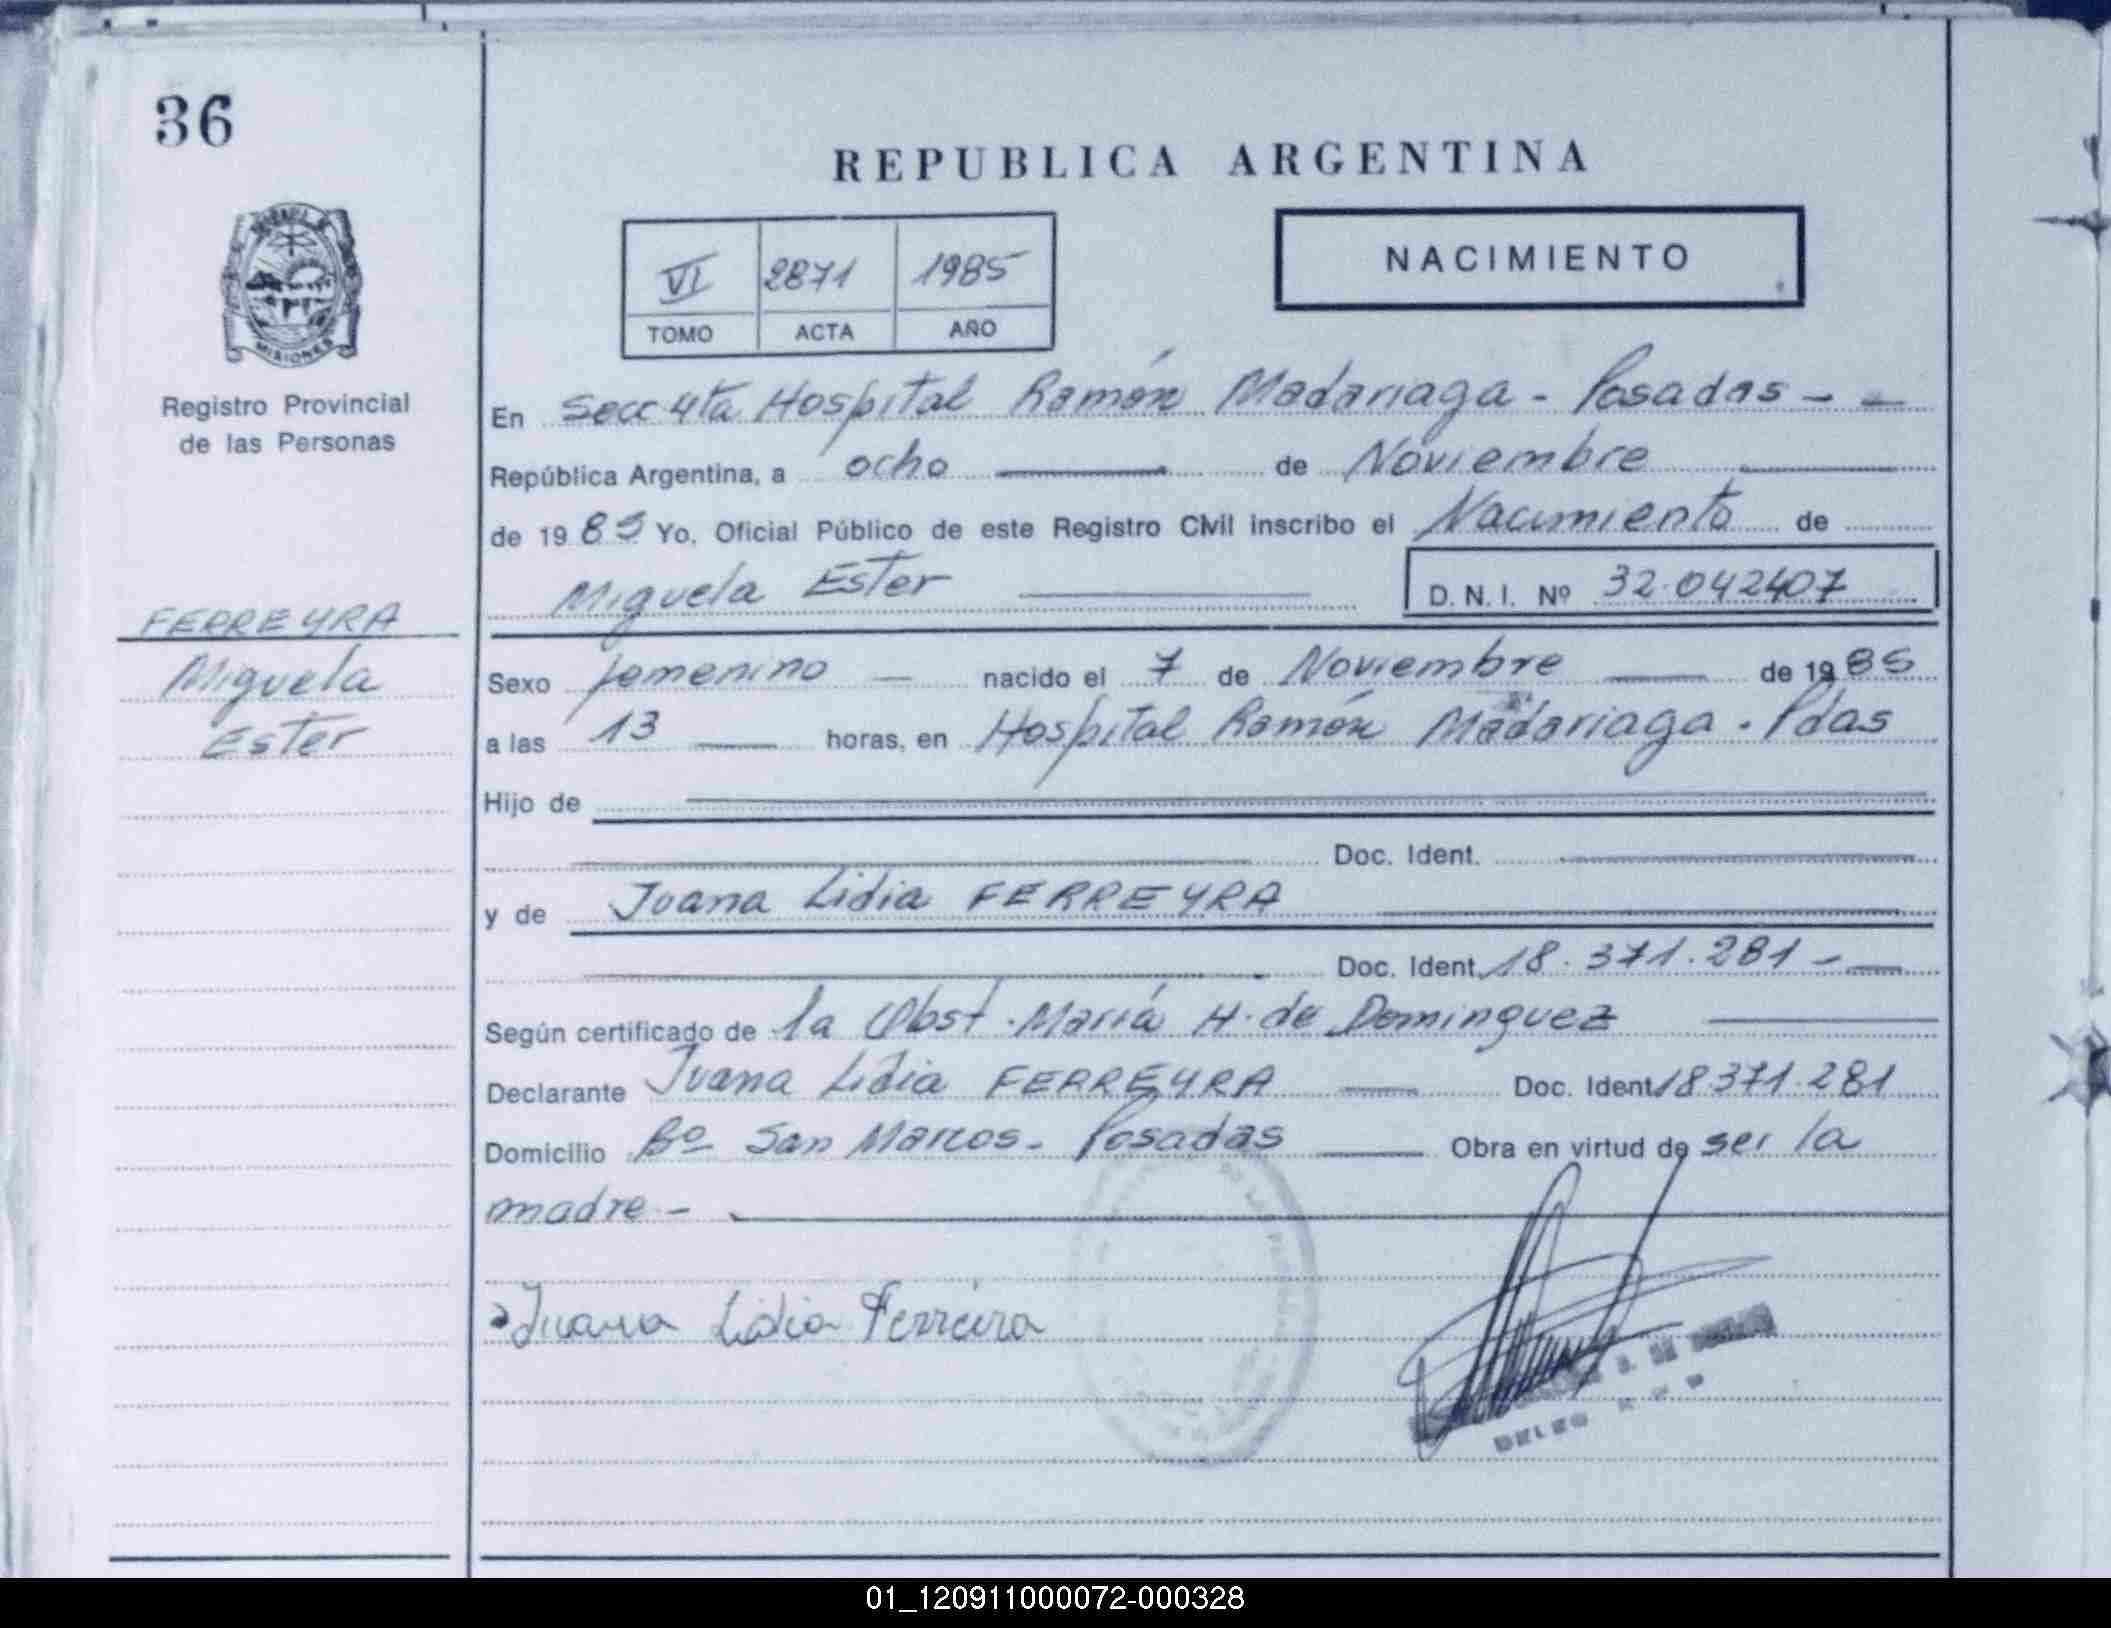 36
REPUBLICA ARGENTINA
VI 2871 1985
TOMO ACTA AÑO
NACIMIENTO
MISIONES
Registro Provincial
de las Personas
En Secc 4ta Hospital Ramón Madariaga - Posadas - -
República Argentina, a ocho de Noviembre
de 1985 Yo, Oficial Público de este Registro Civil inscribo el Nacimiento de
Miguela Ester D. N. I. Nº 32.042407
FERREYRA
Miguela
Ester
Sexo femenino nacido el 7 de Noviembre de 1985
a las 13 horas, en Hospital Ramón Madariaga - Pdas
Hijo de
Doc. Ident.
y de Juana Lidia FERREYRA
Doc. Ident. 18.371.281 -
Según certificado de la Obst. María H. de Dominguez
Declarante Juana Lidia FERREYRA Doc. Ident 18.371.281
Domicilio Bº San Marcos - Posadas Obra en virtud de ser la
madre -
Juana Lidia Ferreira
01_120911000072-000328